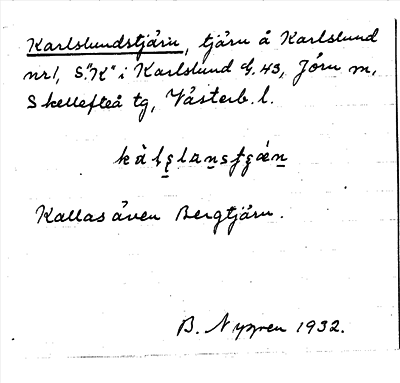 Karlslundstjärn, tjärn å Karlslund
nr 1, S. "K" i Karlslund G. 43, Jörn m,
Skellefteå tg, Västerb. l.
Kallas även Bergtjärn.
B. Nygren 1932.